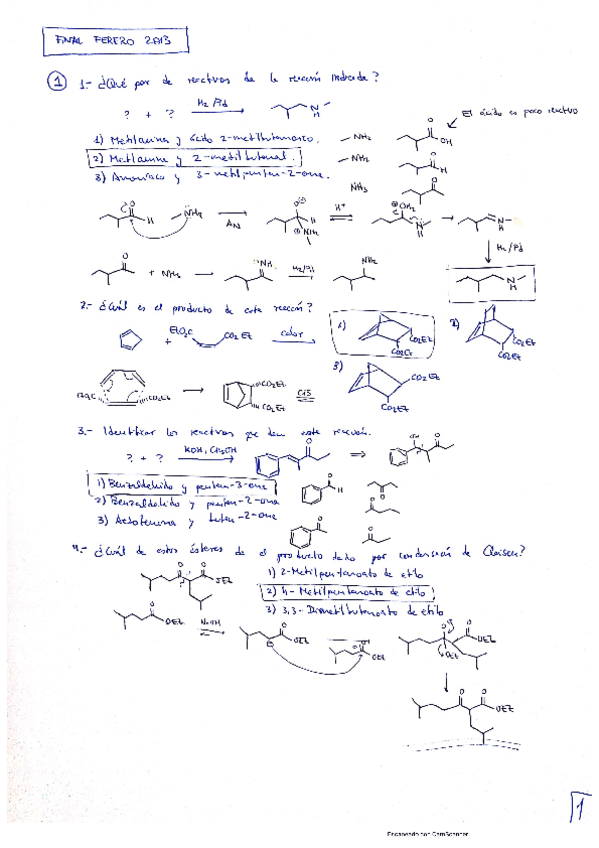 FINAL FEBRERO 2013
1 1.- ¿Qué par de reactivos da la reacción indicada?
? + ? H2/Pd N H
1) Metilamina y ácido 2-metilbutanoico. NH2 O OH El ácido es poco reactivo
2) Metilamina y 2-metilbutanal. NH2 O H
3) Amoniaco y 3-metilpentan-2-ona. NH3 O
O H NH2 AN H H+ OH2 H N H
H2/Pd
O + NH3 NH H2/Pd NH2 N H
2.- ¿Cuál es el producto de esta reacción?
+ EtO2C CO2Et calor 1) CO2Et CO2Et 2) CO2Et CO2Et
3) CO2Et CO2Et
CO2Et CO2Et CO2Et CO2Et CIS
3.- Identificar los reactivos que dan esta reacción.
? + ? KOH, CH3OH O OH O
1) Benzaldehído y pentan-3-ona O H O
2) Benzaldehído y pentan-2-ona O
3) Acetofenona y butan-2-ona O O
4.- ¿Cuál de estos ésteres da el producto dado por condensación de Claisen?
O O OEt 1) 2-Metilpentanoato de etilo
2) 4-Metilpentanoato de etilo
3) 3,3-Dimetilbutanoato de etilo
O OEt O OEt O OEt O O OEt OEt
O O OEt
1
Escaneado con CamScanner